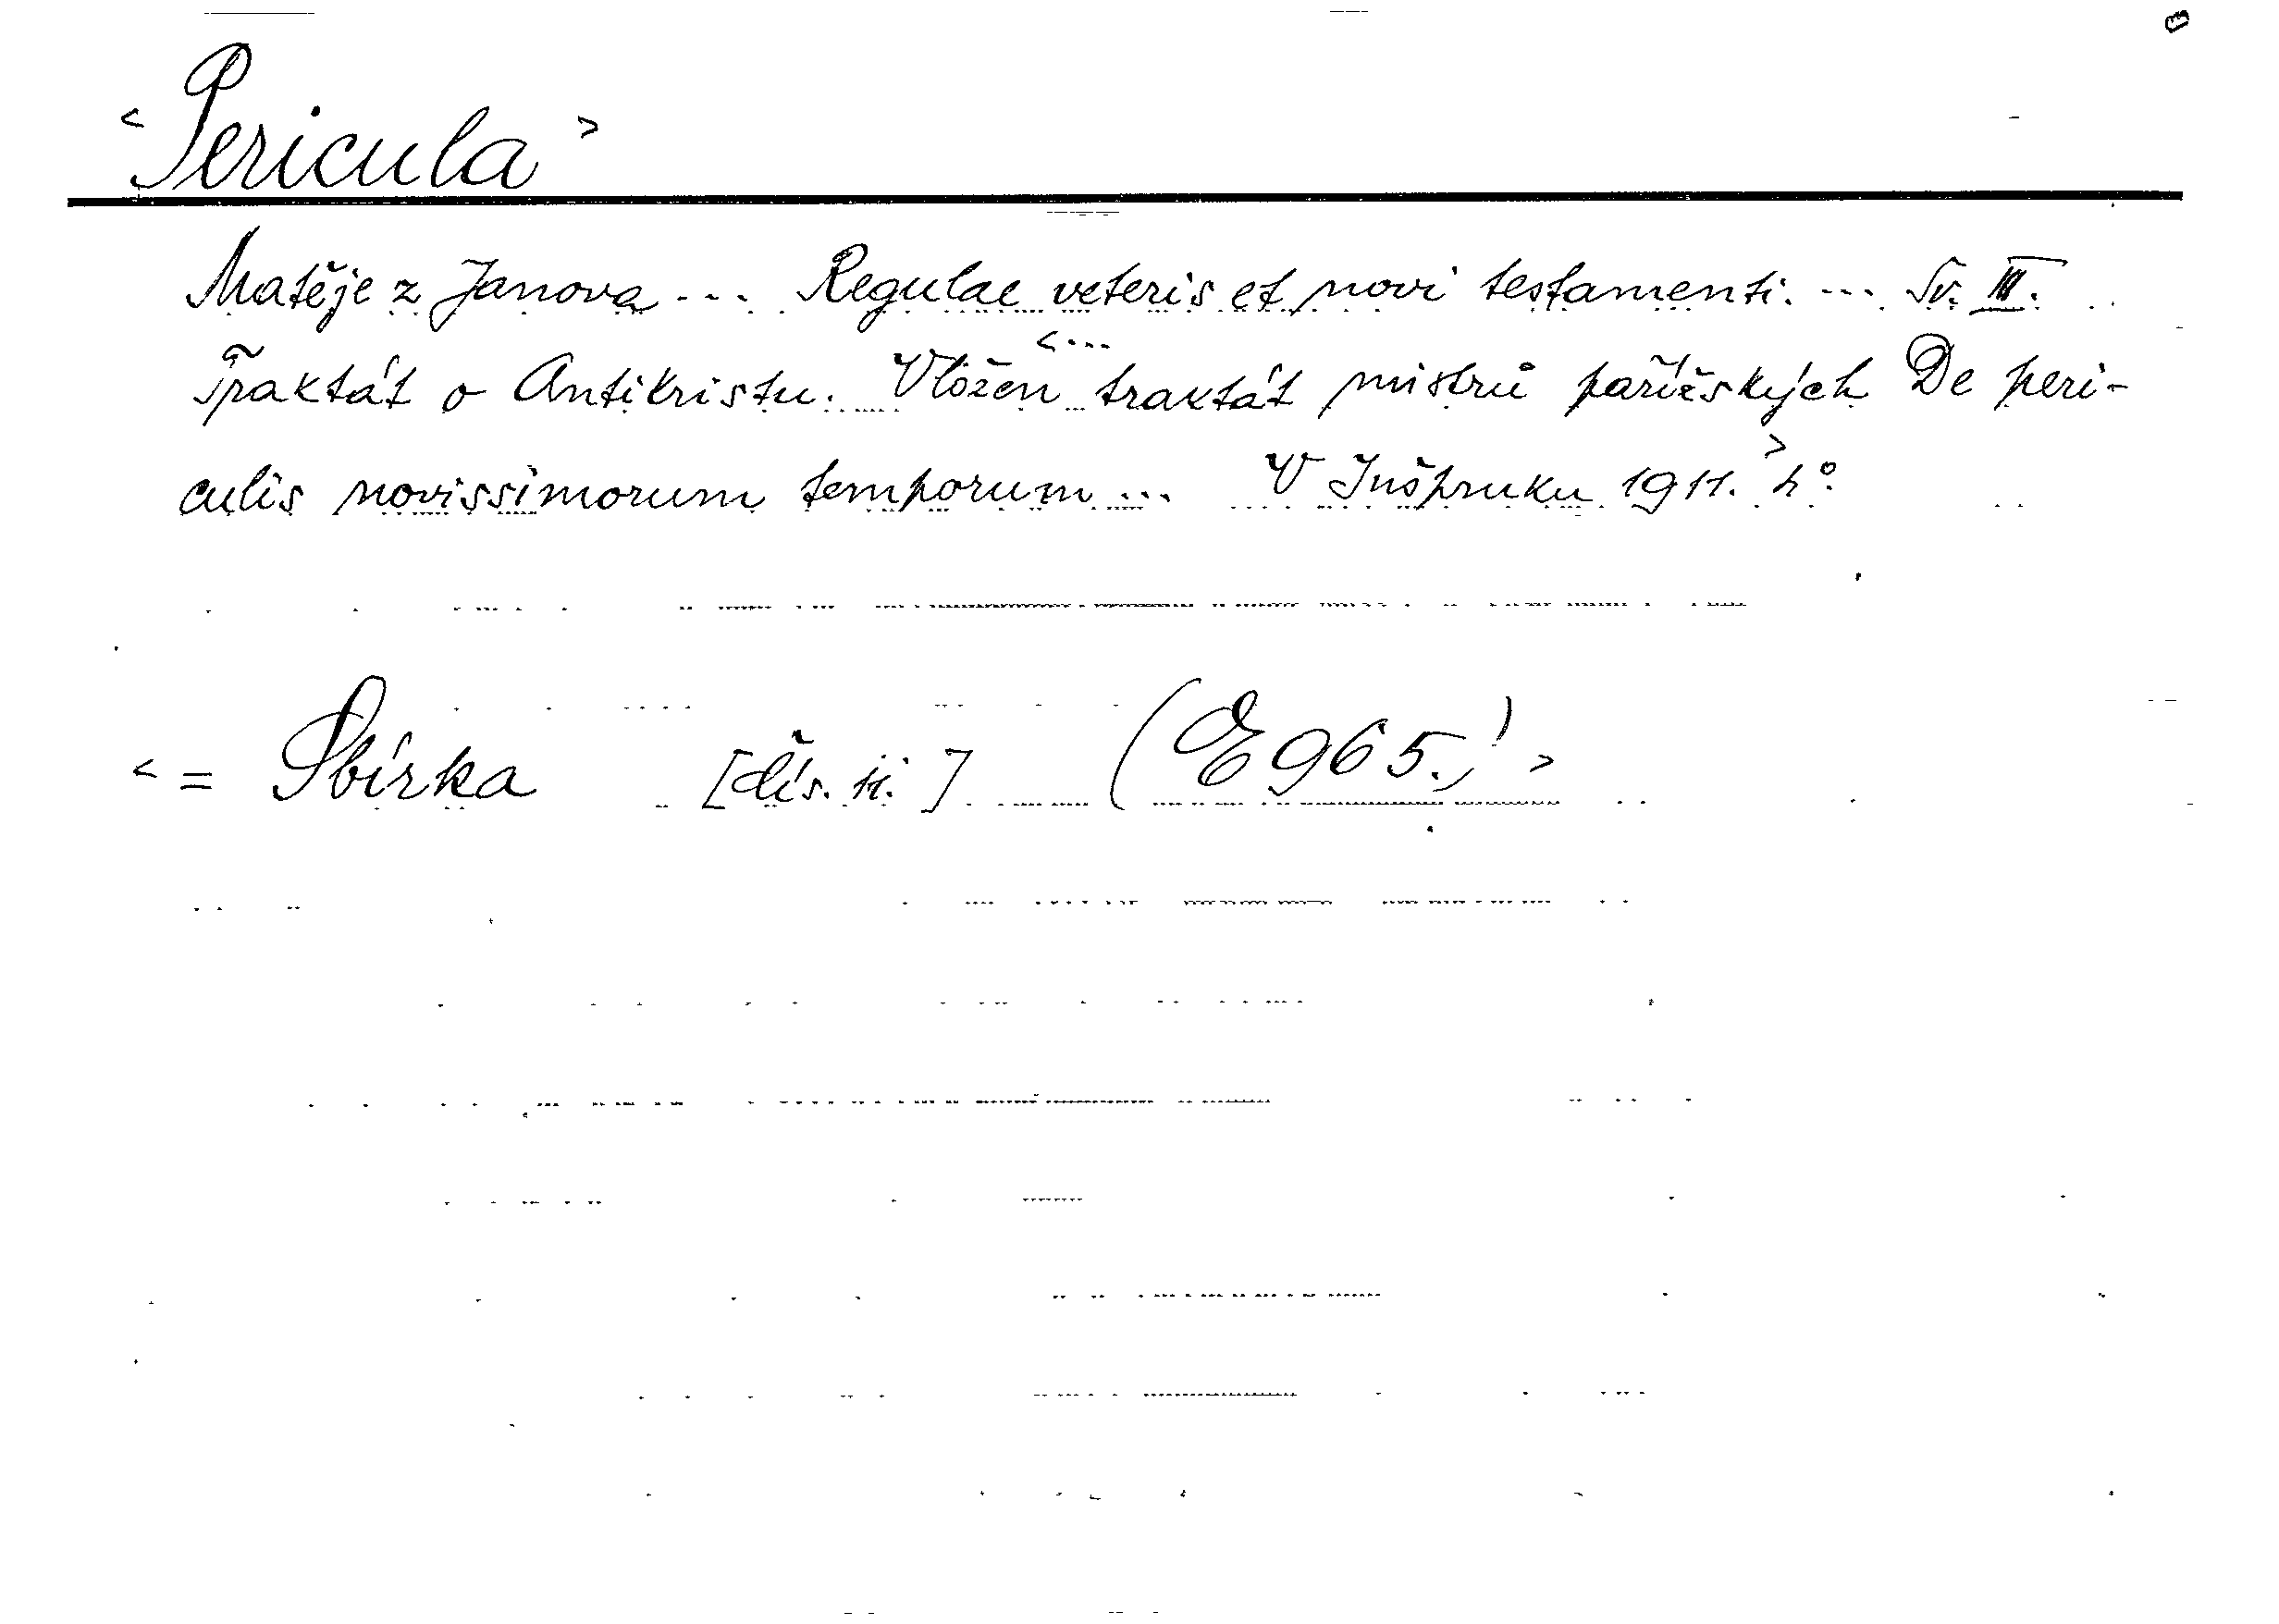 <Pericula>
Matěje z Janova ... Regulae veteris et novi testamenti. ... Sv. III.
Traktát o Antikristu. <... Vložen traktát mistrů pařížských De peri-
culis novissimorum temporum ... V Inšpruku 1911.> 4°.
< = Sbírka [čís. 11.] (E 965.) >